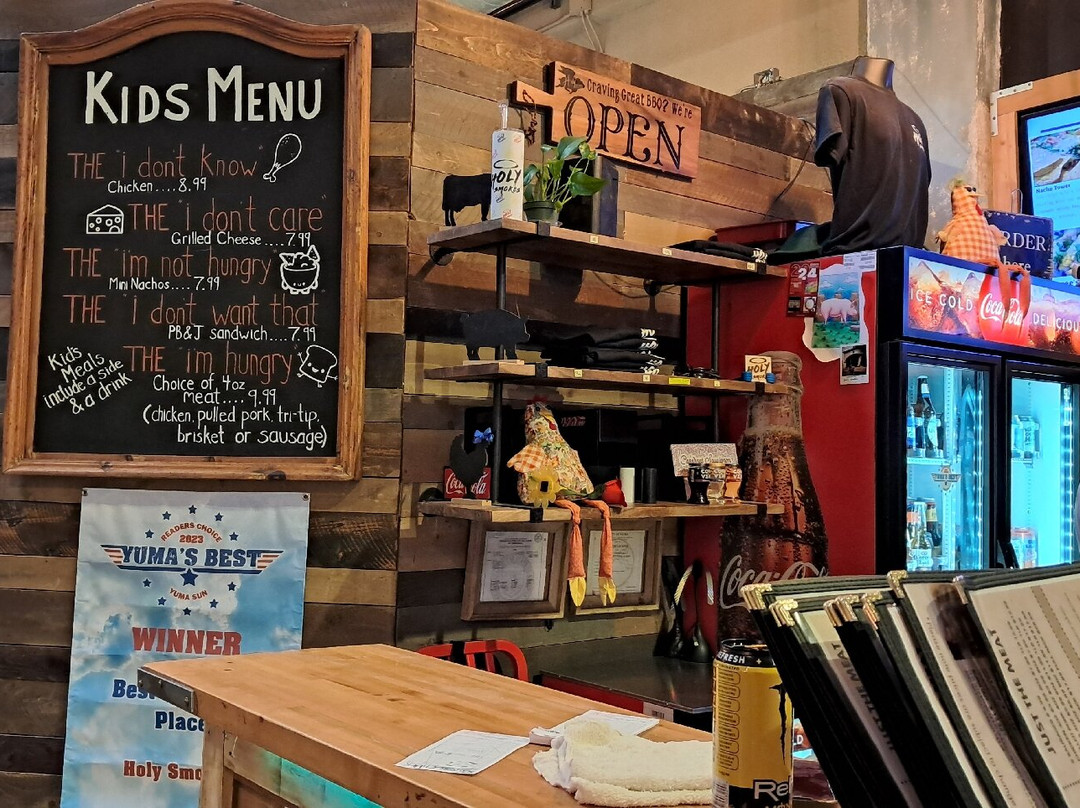 KIDS MENU
THE "i don't know"
Chicken....8.99
THE i don't care
Grilled Cheese....7.99
THE "i'm not hungry
Mini Nachos....7.99
THE i don't want that
PB&J sandwich....7.99
THE "i'm hungry"
Choice of 4oz
meat....9.99
(chicken, pulled pork, tri-tip,
brisket or sausage)
Kid's
Meals
include a side
& a drink
READERS CHOICE
2023
YUMA'S BEST
YUMA SUN
WINNER
Best
Place
Holy Smo
Craving Great BBQ? We're
OPEN
HOLY
SMOKES
HOLY
24
Nacho Tower
RDER
here
ICE COLD Coca-Cola DELICIOU
Coca-Cola
Coca-Cola
REFRESH
Re
JUST THE MEAT